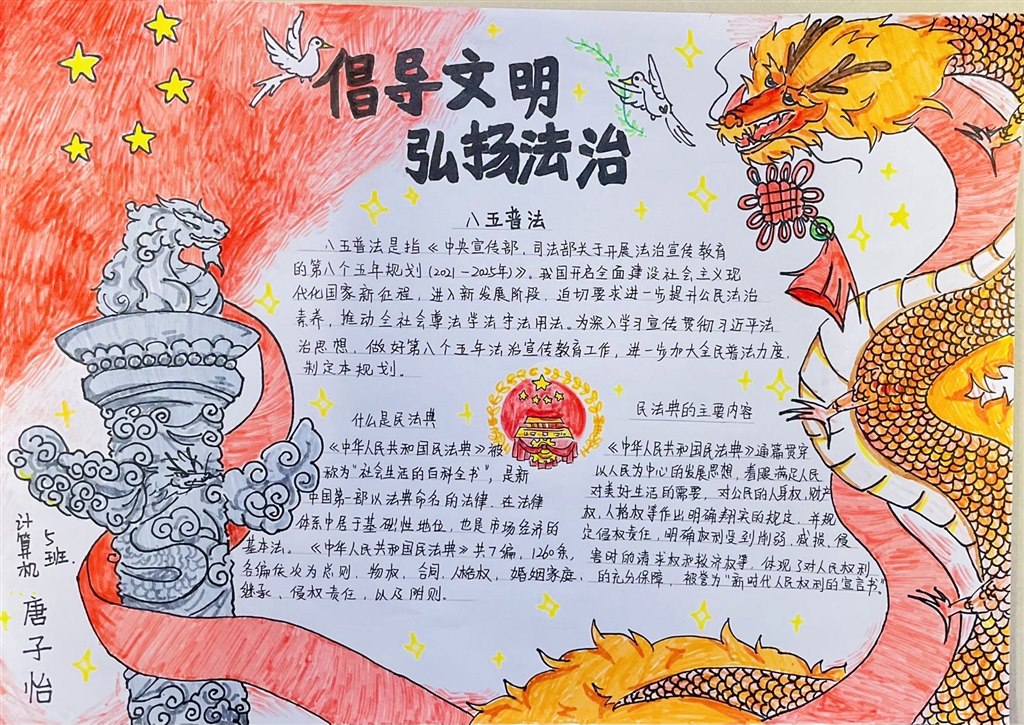 倡导文明
弘扬法治
八五普法
八五普法是指《中央宣传部、司法部关于开展法治宣传教育
的第八个五年规划(2021-2025年)》。我国开启全面建设社会主义现
代化国家新征程,进入新发展阶段,迫切要求进一步提升公民法治
素养,推动全社会尊法学法守法用法。为深入学习宣传贯彻习近平法
治思想,做好第八个五年法治宣传教育工作,进一步加大全民普法力度,
制定本规划。
什么是民法典
《中华人民共和国民法典》被
称为“社会生活的百科全书”,是新
中国第一部以法典命名的法律,在法律
体系中居于基础性地位,也是市场经济的
基本法。《中华人民共和国民法典》共7编,1260条,
各编依次为总则、物权、合同、人格权、婚姻家庭、
继承、侵权责任,以及附则.
民法典的主要内容
《中华人民共和国民法典》通篇贯穿
以人民为中心的发展思想,着眼满足人民
对美好生活的需要,对公民的人身权、财产
权、人格权等作出明确翔实的规定,并规
定侵权责任,明确权利受到削弱、减损、侵
害时的请求权和救济权等,体现了对人民权利
的充分保障,被誉为“新时代人民权利的宣言书”
计算机
5班.
唐子怡